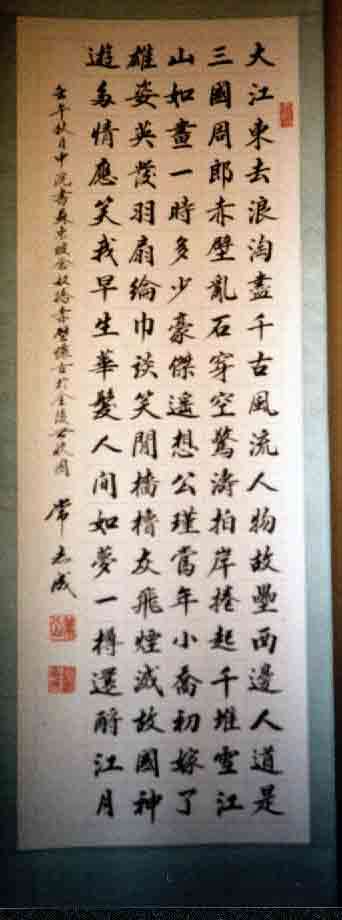 大江東去浪淘盡千古風流人物故壘西邊人道是
三國周郎赤壁亂石穿空驚濤拍岸捲起千堆雪江
山如畫一時多少豪傑遙想公瑾當年小喬初嫁了
雄姿英發羽扇綸巾談笑間檣櫓灰飛煙滅故國神
遊多情應笑我早生華髮人間如夢一樽還酹江月
壬午秋月中浣書蘇東坡念奴嬌赤壁懷古於金陵
常志成